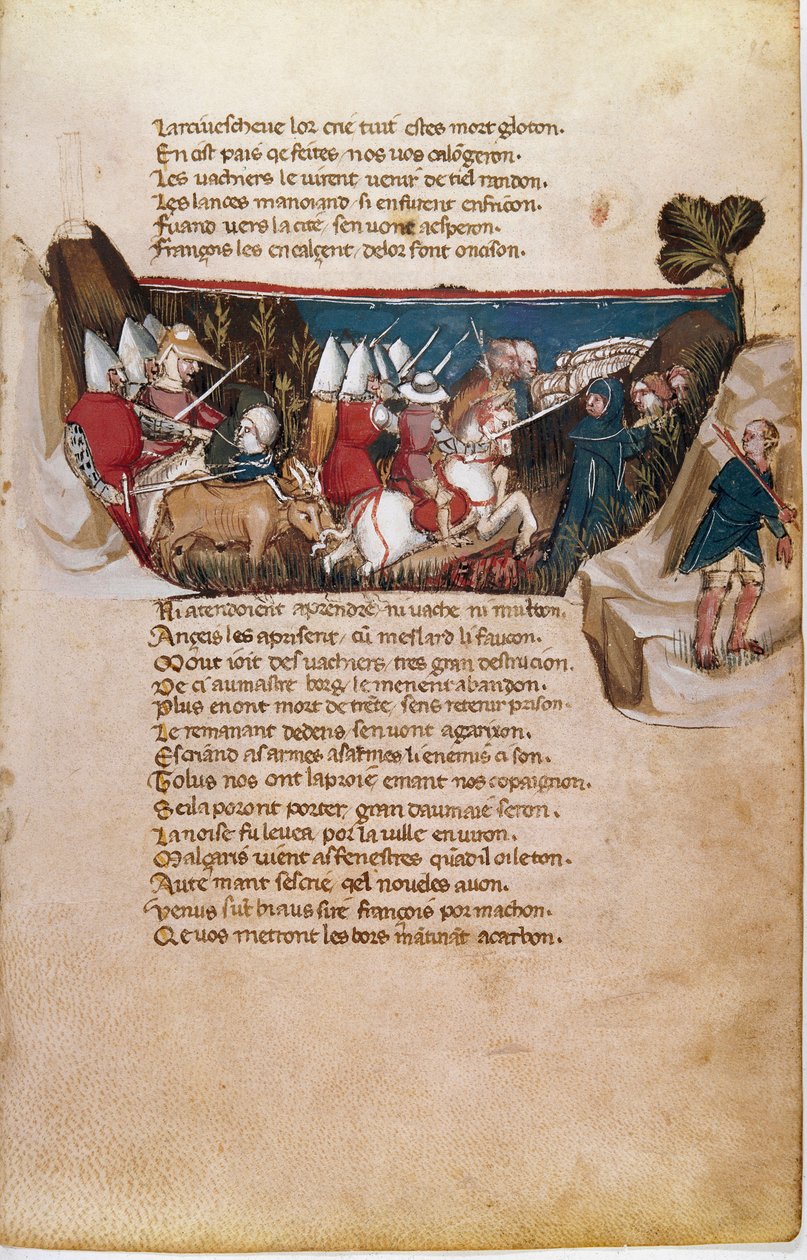 Larcivescheve lor crie tuit estes mort gloton.
En cist païs qe feites / nos vos calongeron.
Les vachiers le virent venir de tiel randon.
Les lances manoiand / si en furent en friçon.
Fuand vers la cite / sen vont a esperon.
François les encalçent / de lor font oncison.
Ni atendoient a prendre / ni vache ni multon.
Ançeis les aprisent / cū meslard li faucon.
Mout i oit des vachiers / tres gran destrucion.
De ci au mastre borg / le menent abandon.
Plus en ont mort de trēte / sens retenir prison.
Le remanant dedens / sen vont a garixon.
Escriand as armes as armes / li enemis ci son.
Tolus nos ont la proie / e mant nos cōpaignon.
Se il a poront porter / gran daumaie seron.
La noise fu levea por la ville en viron.
Malçaris vient as fenestres quād il oi le ton.
Aute mant sescrie / qel noveles avon.
Venus sūt biaus sire françois por machon.
Qe vos metront les bors matināt a carbon.